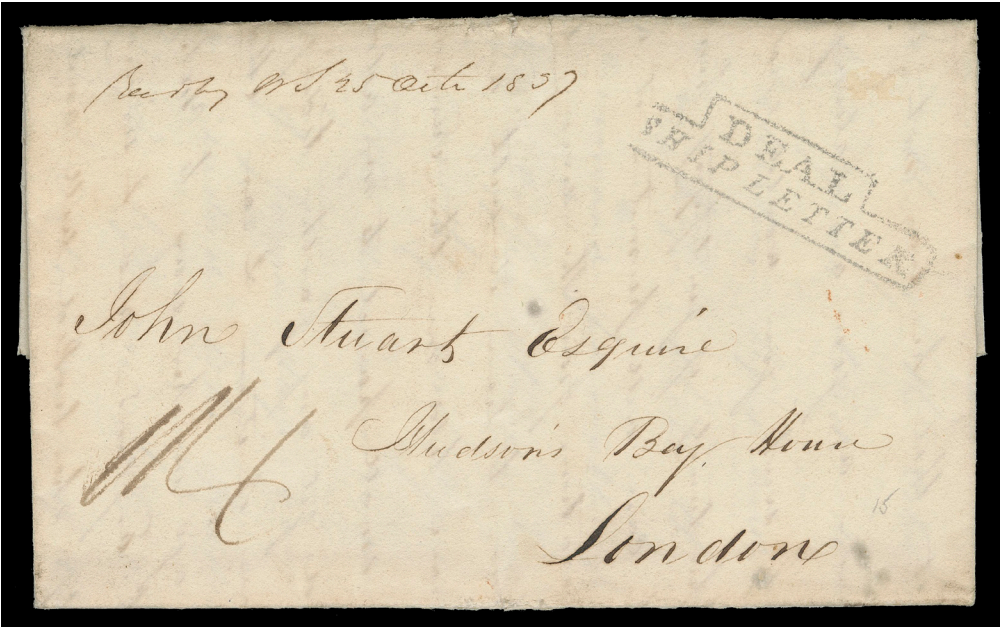 25 Octr 1837
DEAL
SHIP LETTER
John Stuart Esquire
Hudson's Bay House
London
15